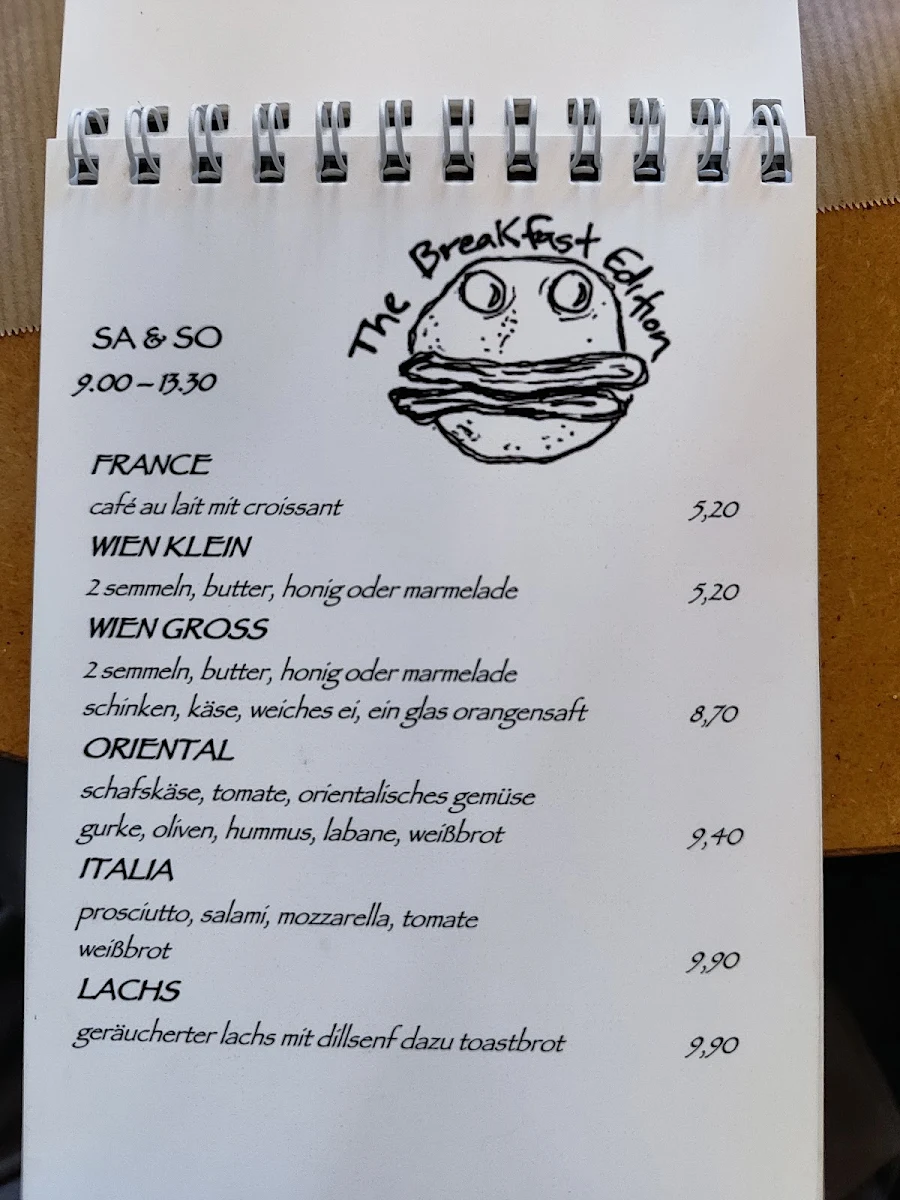 The Breakfast Edition
SA & SO
9.00 – 13.30
FRANCE
café au lait mit croissant 5,20
WIEN KLEIN
2 semmeln, butter, honig oder marmelade 5,20
WIEN GROSS
2 semmeln, butter, honig oder marmelade
schinken, käse, weiches ei, ein glas orangensaft 8,70
ORIENTAL
schafskäse, tomate, orientalisches gemüse
gurke, oliven, hummus, labane, weißbrot 9,40
ITALIA
prosciutto, salami, mozzarella, tomate
weißbrot 9,90
LACHS
geräucherter lachs mit dillsenf dazu toastbrot 9,90